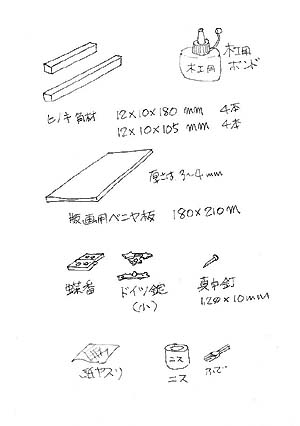 木工用
ボンド
木工用
ヒノキ角材 12×10×180 mm 4本
12×10×105 mm 4本
厚さは 3~4mm
版画用ベニヤ板 180×210m
蝶番
ドイツ錠
(小)
真中釘
1.20×10mm
紙ヤスリ
ニス
ニス
ふで